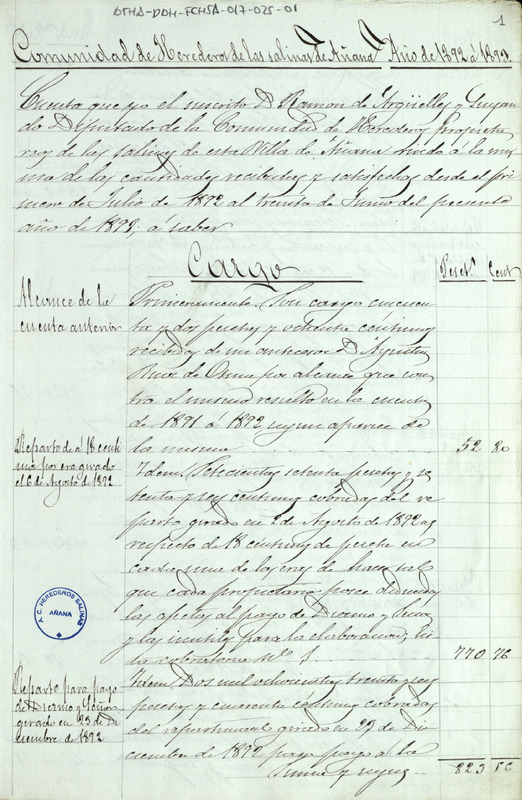 DTHA-DDH-FCHSA-017-025-01
1
Comunidad de Herederos de las salinas de Añana Año de 1892 á 1893.
Cuenta que yo el suscrito D. Ramon de Argüelles y
do Diputado de la Comunidad de Herederos propieta
rios de las salinas de esta Villa de Añana rindo á la mis
ma de las cantidades recibidas y satisfechas desde el pri
mero de Julio de 1892 al treinta de Junio del presente
año de 1893, á saber
Cargo
Peset.s Cent
Alcance de la
cuenta anterior
Primeramente. Son cargo cincuen
ta y dos pesetas y ochenta centimos
recibidas de mi antecesor D. Agustin
Ruiz de por alcance que con
tra el mismo resultó en la cuenta
de 1891 á 1892 segun aparece de
la misma 52 80
Reparto de á 18 centi
mos por era girado
el 6 de Agosto de 1892
Idem. Setecientas setenta pesetas y se
tenta y seis centimos cobradas del re
parto girado en 2 de Agosto de 1892 al
respecto de 18 centimos de peseta en
cada una de las eras de hacer sal
que cada propietario posee deducidas
las afectas al pago de Diezmo y
y las inutiles para la elaboracion,
la cobratoria Nº 1 770 76
A. C. HEREDEROS SALINAS
AÑANA
Reparto para pago
de Diezmo y
girado en 23 de Di
ciembre de 1892
Idem. Dos mil ochocientas treinta y seis
pesetas y cuarenta céntimos cobradas
del repartimiento girado en 27 de Di
ciembre de 1892 para pago a la
Suma y sigue 823 56